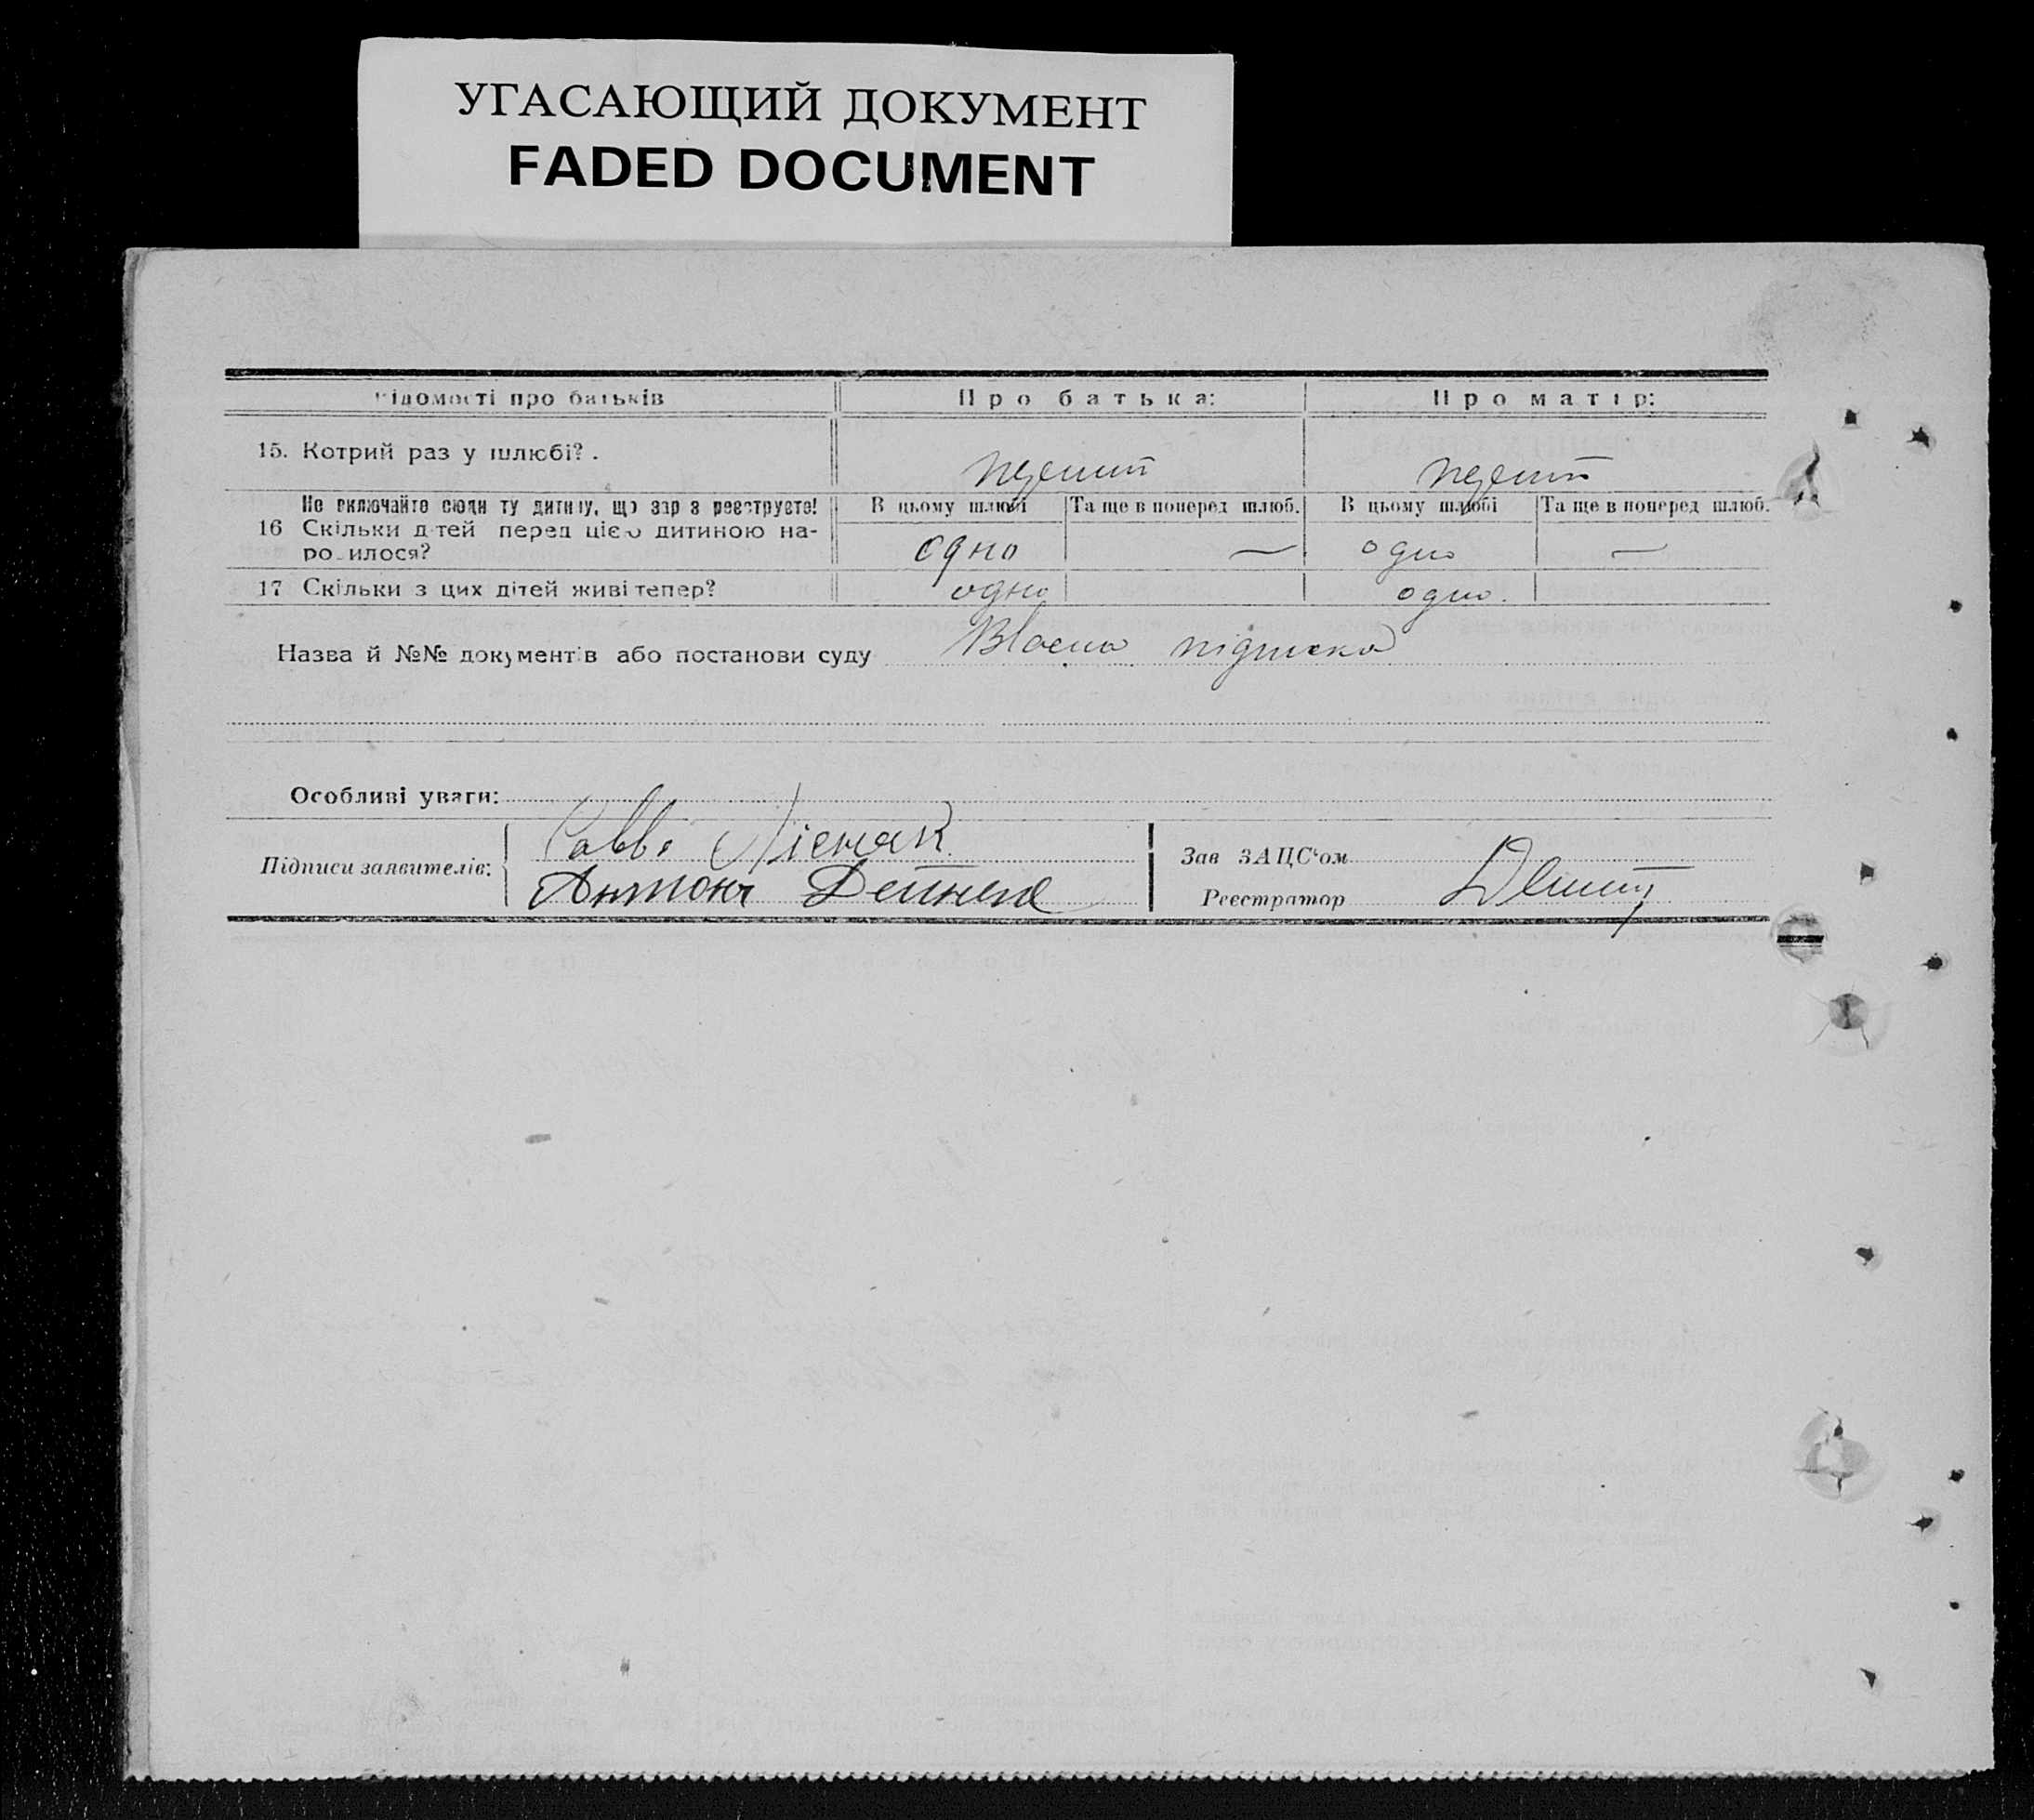 УГАСАЮЩИЙ ДОКУМЕНТ
FADED DOCUMENT
ідомості про батьків Про батька: Про матір:
15. Котрий раз у шлюбі? . перший перший
Не включайте сюди ту дитину, що зараз реєструєте! В цьому шлюбі Та ще в поперед шлюб. В цьому шлюбі Та ще в поперед шлюб.
16 Скільки дітей перед цією дитиною на-
родилося? одно — одно —
17 Скільки з цих дітей живі тепер? одно одно.
Назва й №№ документів або постанови суду Власна підписка
Особливі уваги:
Підписи заявителів: Савва
Антон Дейнека
Зав ЗАЦС'ом
Реєстратор